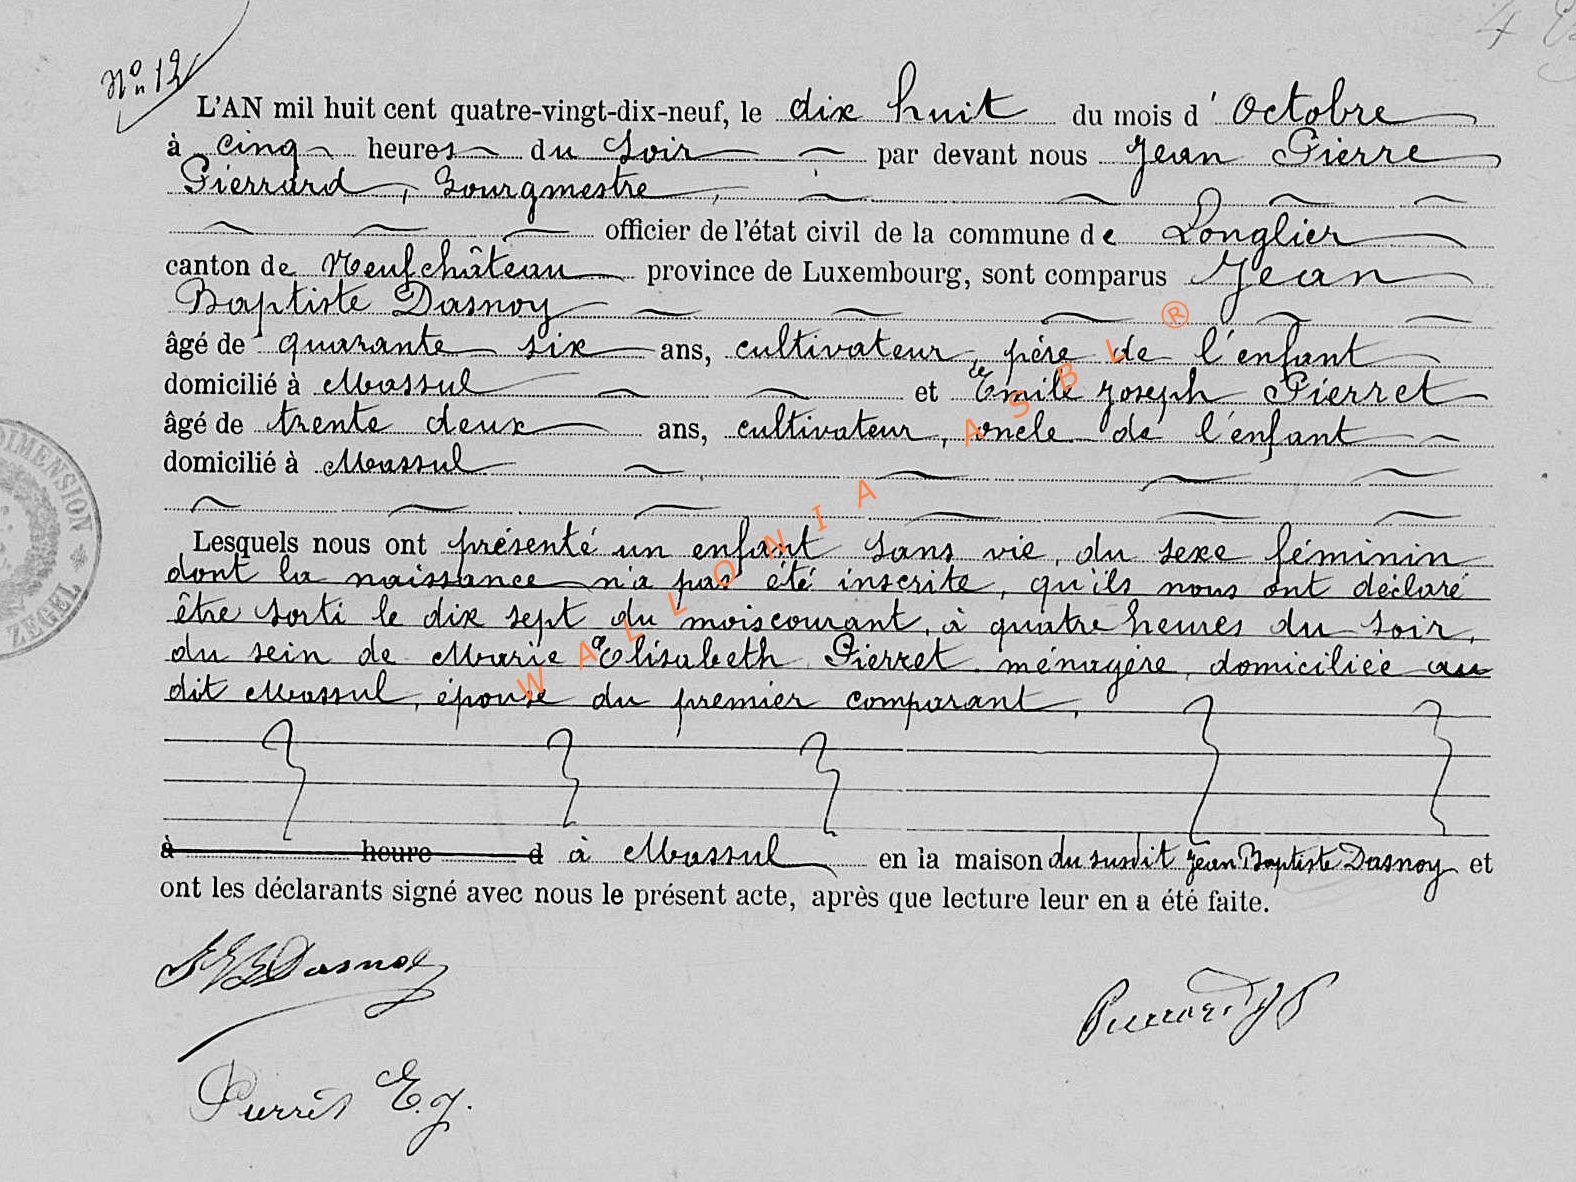 Nº 12
L'AN mil huit cent quatre-vingt-dix-neuf, le dix huit du mois d'Octobre
à cinq heures du soir par devant nous Jean Pierre
Pierrard, Bourgmestre,
officier de l'état civil de la commune de Longlier
canton de Neufchâteau province de Luxembourg, sont comparus Jean
Baptiste Dasnoy
âgé de quarante six ans, cultivateur, père de l'enfant
domicilié à Massul et Emile Joseph Pierret
âgé de trente deux ans, cultivateur, oncle de l'enfant
domicilié à Massul
Lesquels nous ont présenté un enfant sans vie, du sexe féminin
dont la naissance n'a pas été inscrite, qu'ils nous ont déclaré
être sorti le dix sept du mois courant, à quatre heures du soir,
du sein de Marie Elisabeth Pierret ménagère, domiciliée au
dit Massul, épouse du premier comparant,
à heure d à Massul en la maison du susdit Jean Baptiste Dasnoy et
ont les déclarants signé avec nous le présent acte, après que lecture leur en a été faite.
Dasnoy
Pierrard JP
Pierret E. J.
DIMENSION
ZEGEL
WALLONIA ASBL ®